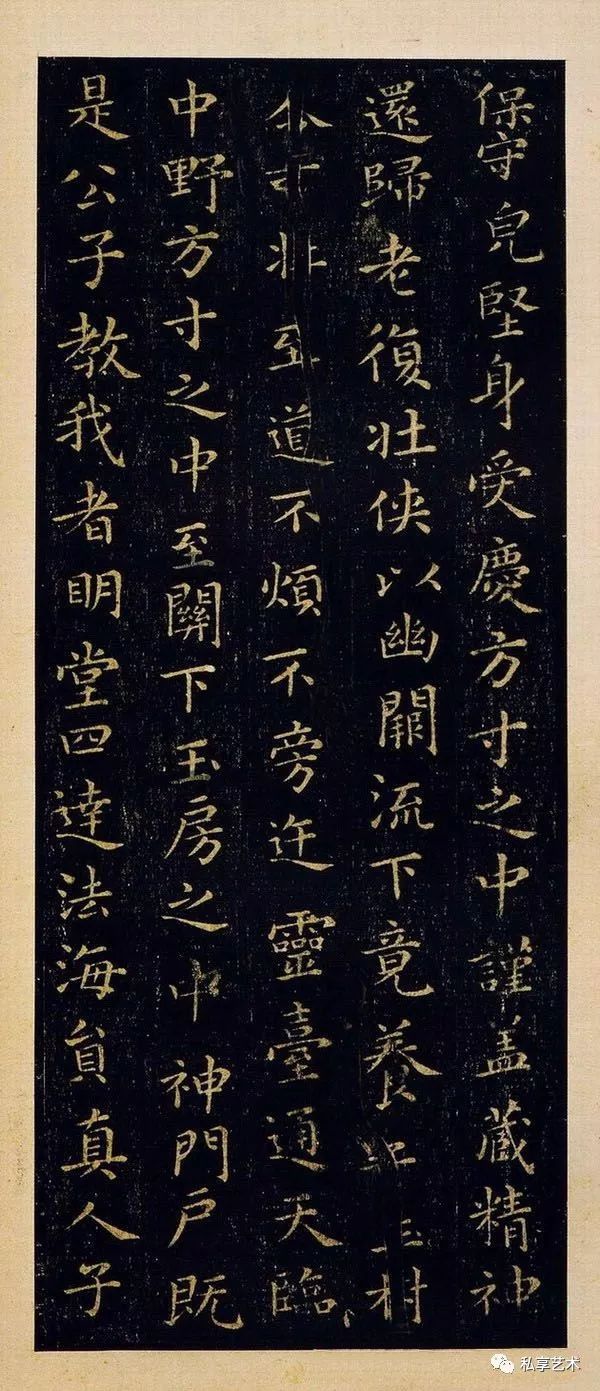 保守皃堅身受慶方寸之中謹盖藏精神
還歸老復壯俠以幽闕流下竟養
至道不煩不旁迕靈臺通天臨
中野方寸之中至關下玉房之中神門戶既
是公子教我者眀堂四達法海負真人子
私享艺术